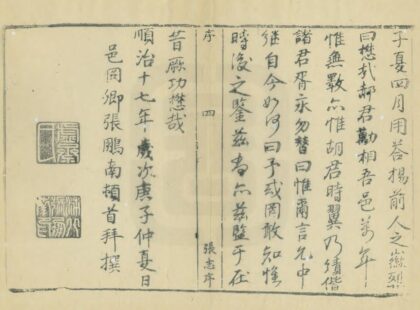 子夏四月用荅揚前人之徽烈
曰懋哉郝君勷相吾邑萬年
惟無斁亦惟胡君時翼乃績偕
諸君胥永勿替曰惟爾言允中
继自今如何曰予或罔敢知惟
時後之鑒兹者亦兹監于在
序 四 張志序
昔厥功懋哉
順治十七年歲次庚子仲夏日
邑冏卿張鵬南頓首拜撰